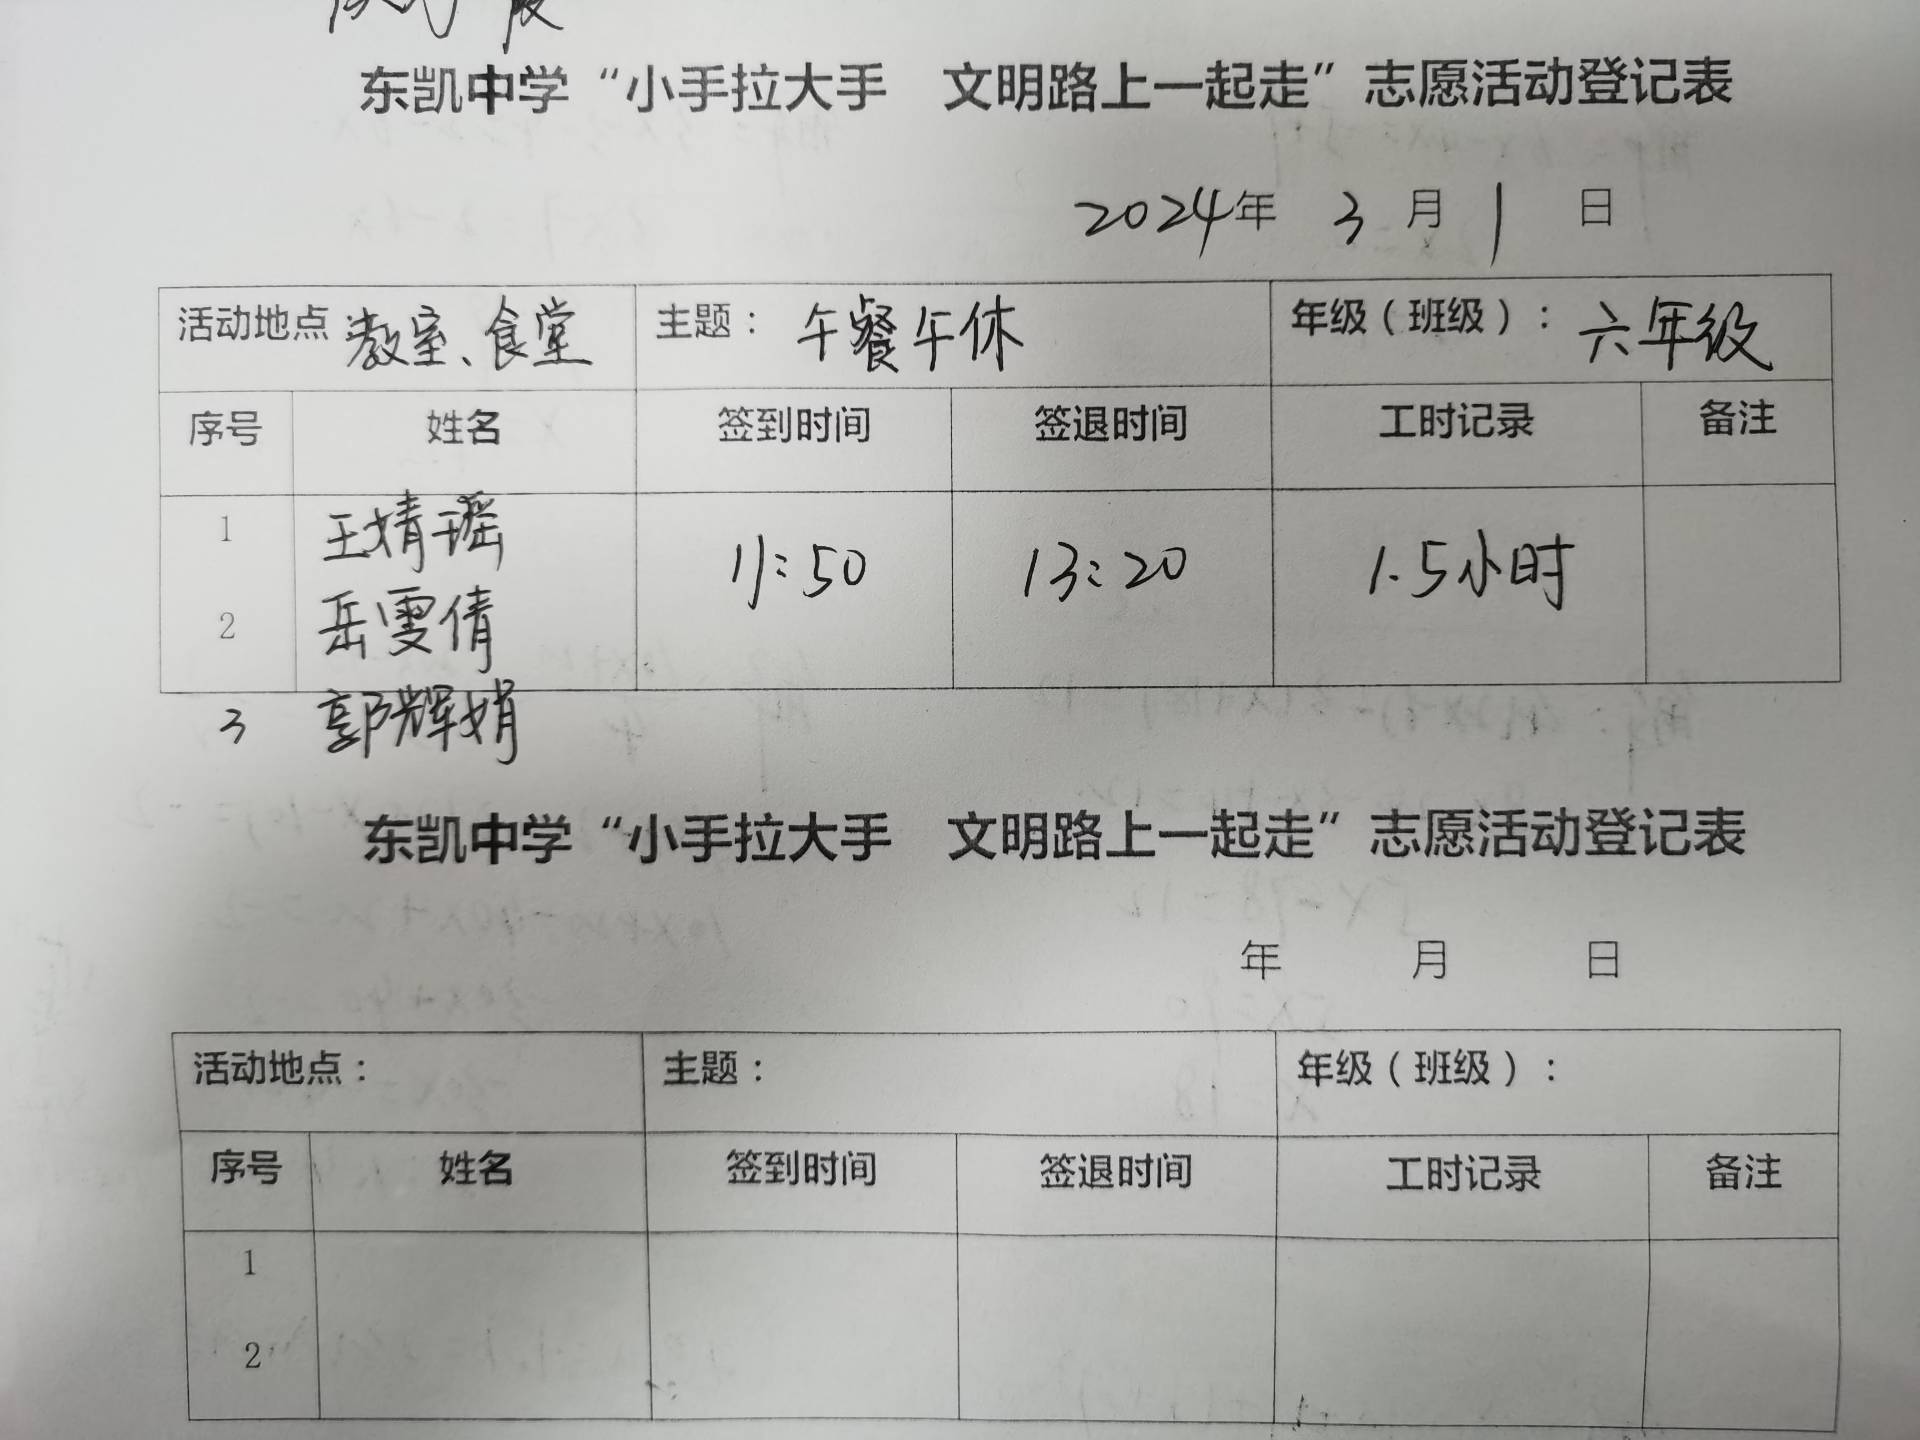 东凯中学“小手拉大手 文明路上一起走”志愿活动登记表
2024年 3月 1日
活动地点 教室、食堂 主题： 午餐午休 年级（班级）： 六年级
序号 姓名 签到时间 签退时间 工时记录 备注
1 王婧瑶
11:50 13:20 1.5小时
2 岳雯倩
3 郭辉娟
东凯中学“小手拉大手 文明路上一起走”志愿活动登记表
年 月 日
活动地点： 主题： 年级（班级）：
序号 姓名 签到时间 签退时间 工时记录 备注
1
2